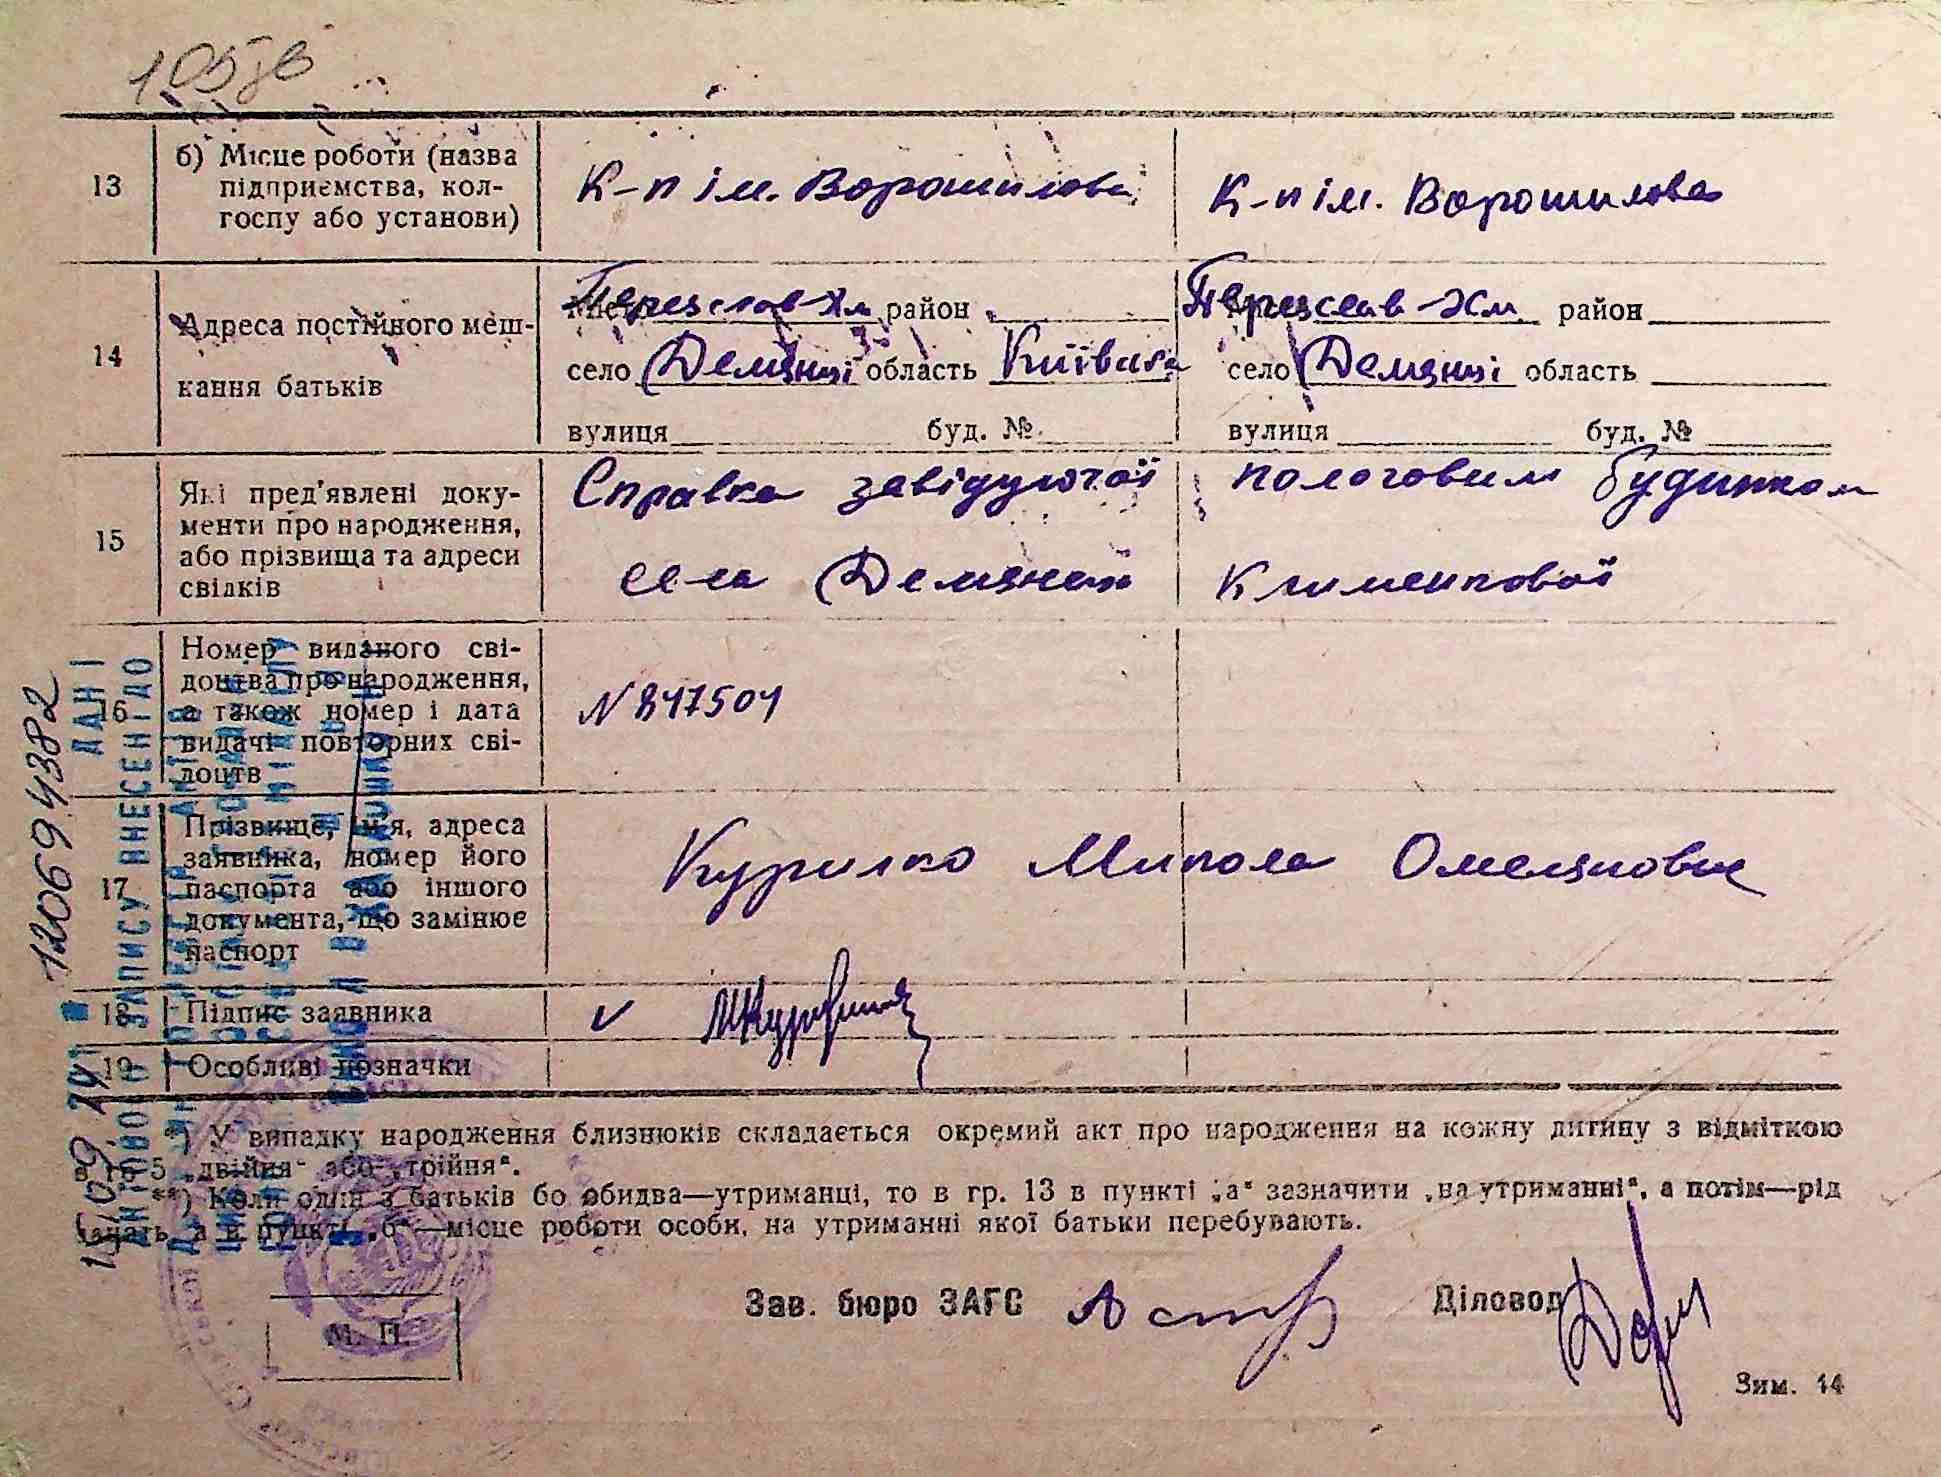 105зв
13
б) Місце роботи (назва
підприємства, кол-
госпу або установи)
К-п ім. Ворошилова
К-п ім. Ворошилова
14
Адреса постійного меш-
кання батьків
Переяслав-Хм район
село Демянці область Київська
вулиця буд. №
Переяслав-Хм район
село Демянці область
вулиця буд. №
15
Які пред'явлені доку-
менти про народження,
або прізвища та адреси
свідків
Справка завідуючої пологовим будинком
села Демянець
16
Номер виданого сві-
доцтва про народження,
а також номер і дата
видачі повторних сві-
доцтв
N 847504
17
Прізвище, ім'я, адреса
заявника, номер його
паспорта або іншого
документа, що замінює
паспорт
Курилко Микола Омелянович
18
Підпис заявника
19
Особливі позначки
*) У випадку народження близнюків складається окремий акт про народження на кожну дитину з відміткою
в гр 5 „двійня“ або „трійня“.
**) Коли один з батьків бо обидва—утриманці, то в гр. 13 в пункті „а“ зазначити „на утриманні“, а потім—рід
а в пункті „б“—місце роботи особи, на утриманні якої батьки перебувають.
Зав. бюро ЗАГС
Діловод
М. П.
Зим. 14
12069 4382
ДАНІ
ЗАПИСУ ВНЕСЕНІ ДО